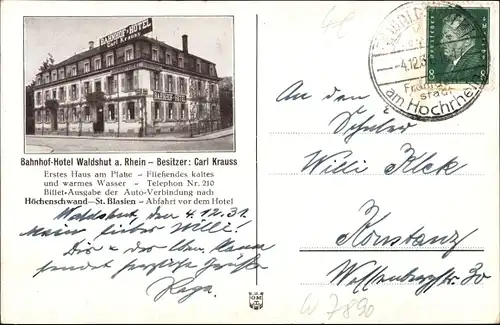 BAHNHOF-HOTEL
Carl Krauss
BAHNHOF-HOTEL
Bahnhof-Hotel Waldshut a. Rhein – Besitzer: Carl Krauss
Erstes Haus am Platze – Fließendes kaltes
und warmes Wasser – Telephon Nr. 210
Billet-Ausgabe der Auto-Verbindung nach
Höchenschwand—St. Blasien – Abfahrt vor dem Hotel
Waldshut, den 4.12.31.
Mein lieber Willi!
Dir &
sendet herzliche Grüße
An den
Schüler
Willi
Konstanz
30
8
-4.12.3
stadt
am Hochrhein
W 7890